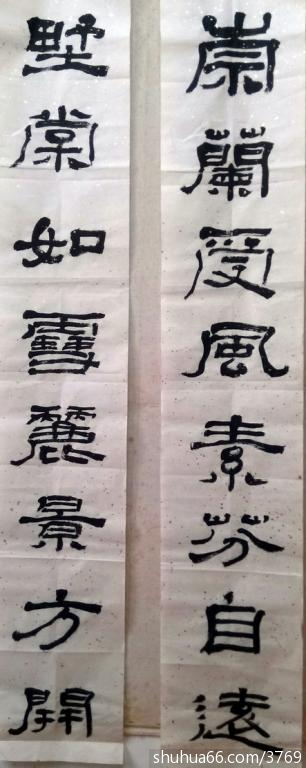 崇蘭受風素芬自遠
野棠如雪麗景方開
shuhua66.com/3769